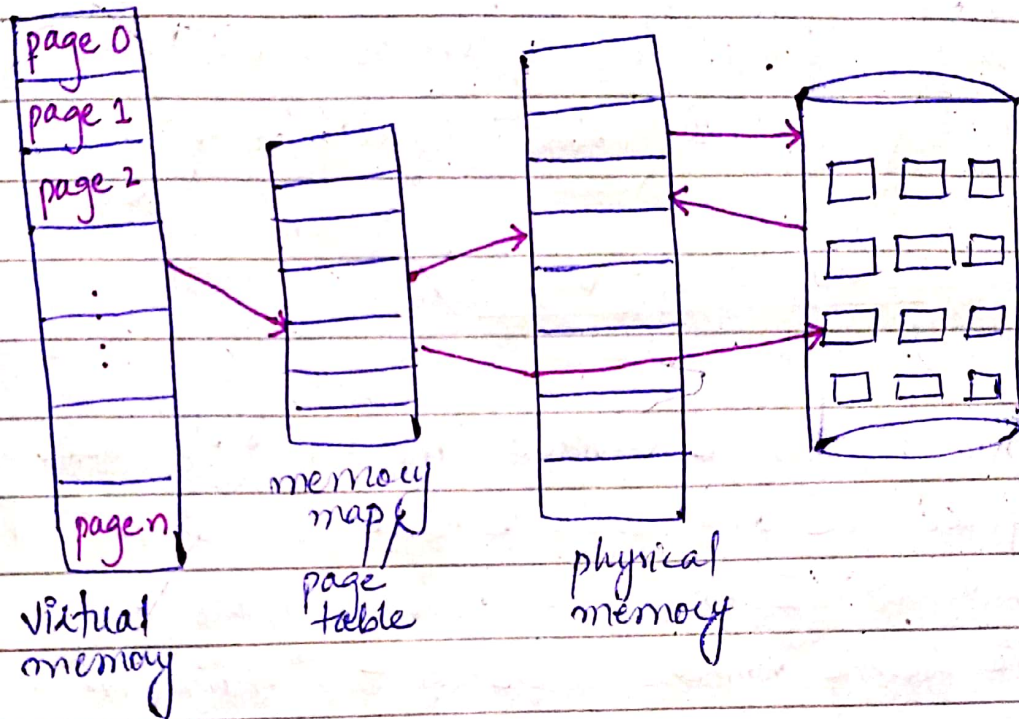 page 0
page 1
page 2
page n
virtual
memory
memory
map /
page
table
physical
memory